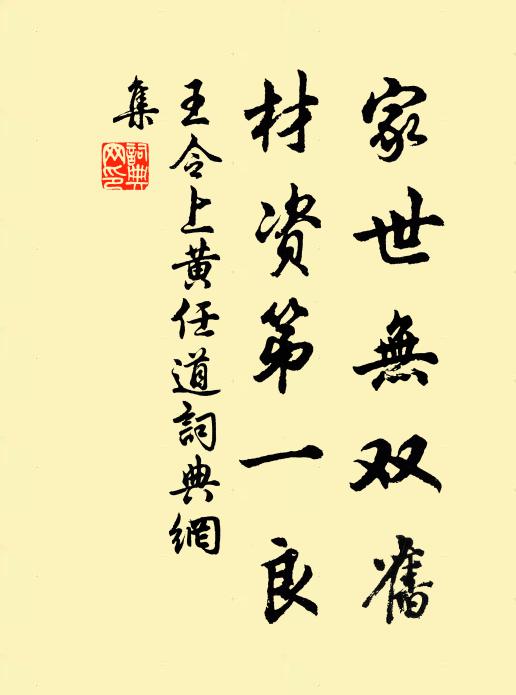 家世無双舊
材资第一良
王令上黄任道詞典網
集
詞典
网印